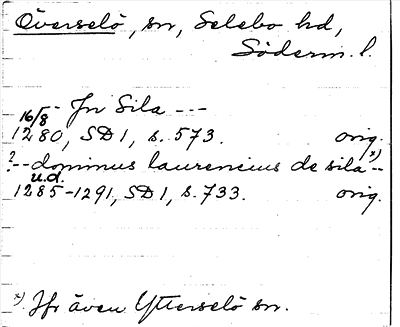 Överselö, sn, Selebo hd,
Söderm. l.
-- Jn Sila ---
16/8
1280, SD 1, s. 573. orig.
? -- dominus laurencius de sila x) --
u.d.
1285-1291, SD 1, s. 733. orig.
x) Jfr även Ytterselö sn.